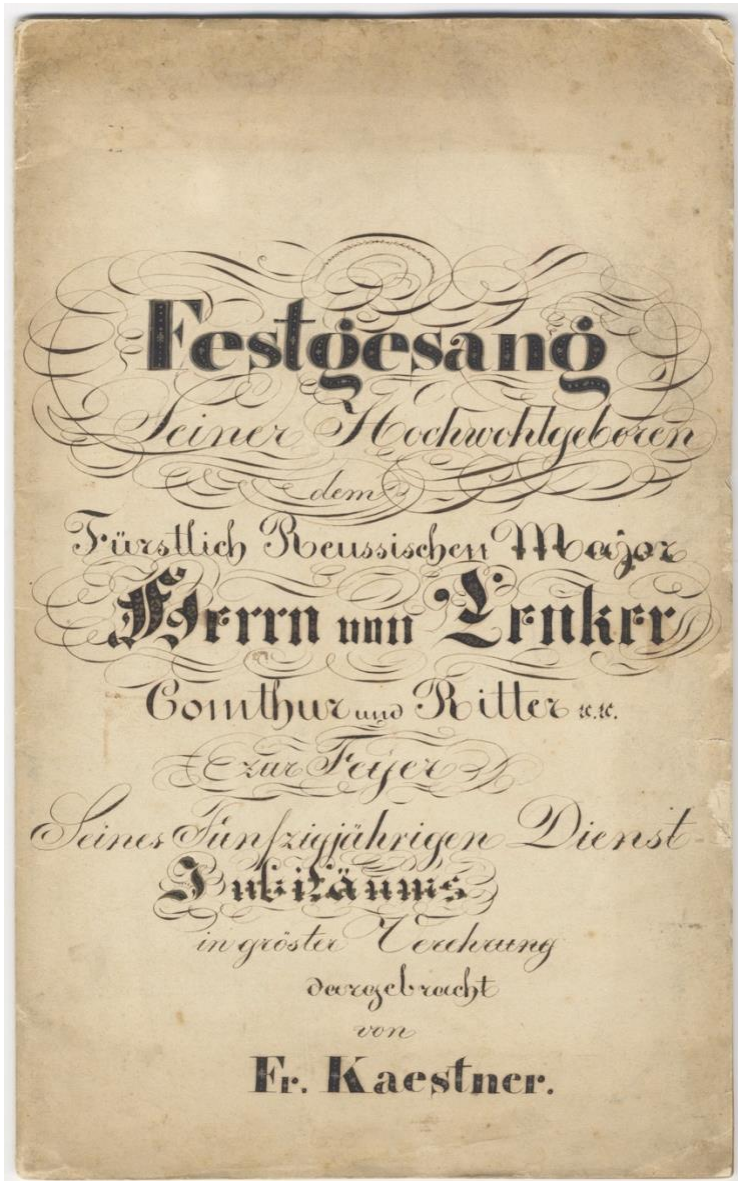 Festgesang
Seiner Hochwohlgeboren
dem
Fürstlich Reussischen Major
Herrn von Lenker
Comthur und Ritter ꝛc.ꝛc.
zur Feyer
Seines Fünfzigjährigen Dienst-
Jubiläums
in gröster Verehrung
dargebracht
von
Fr. Kaestner.